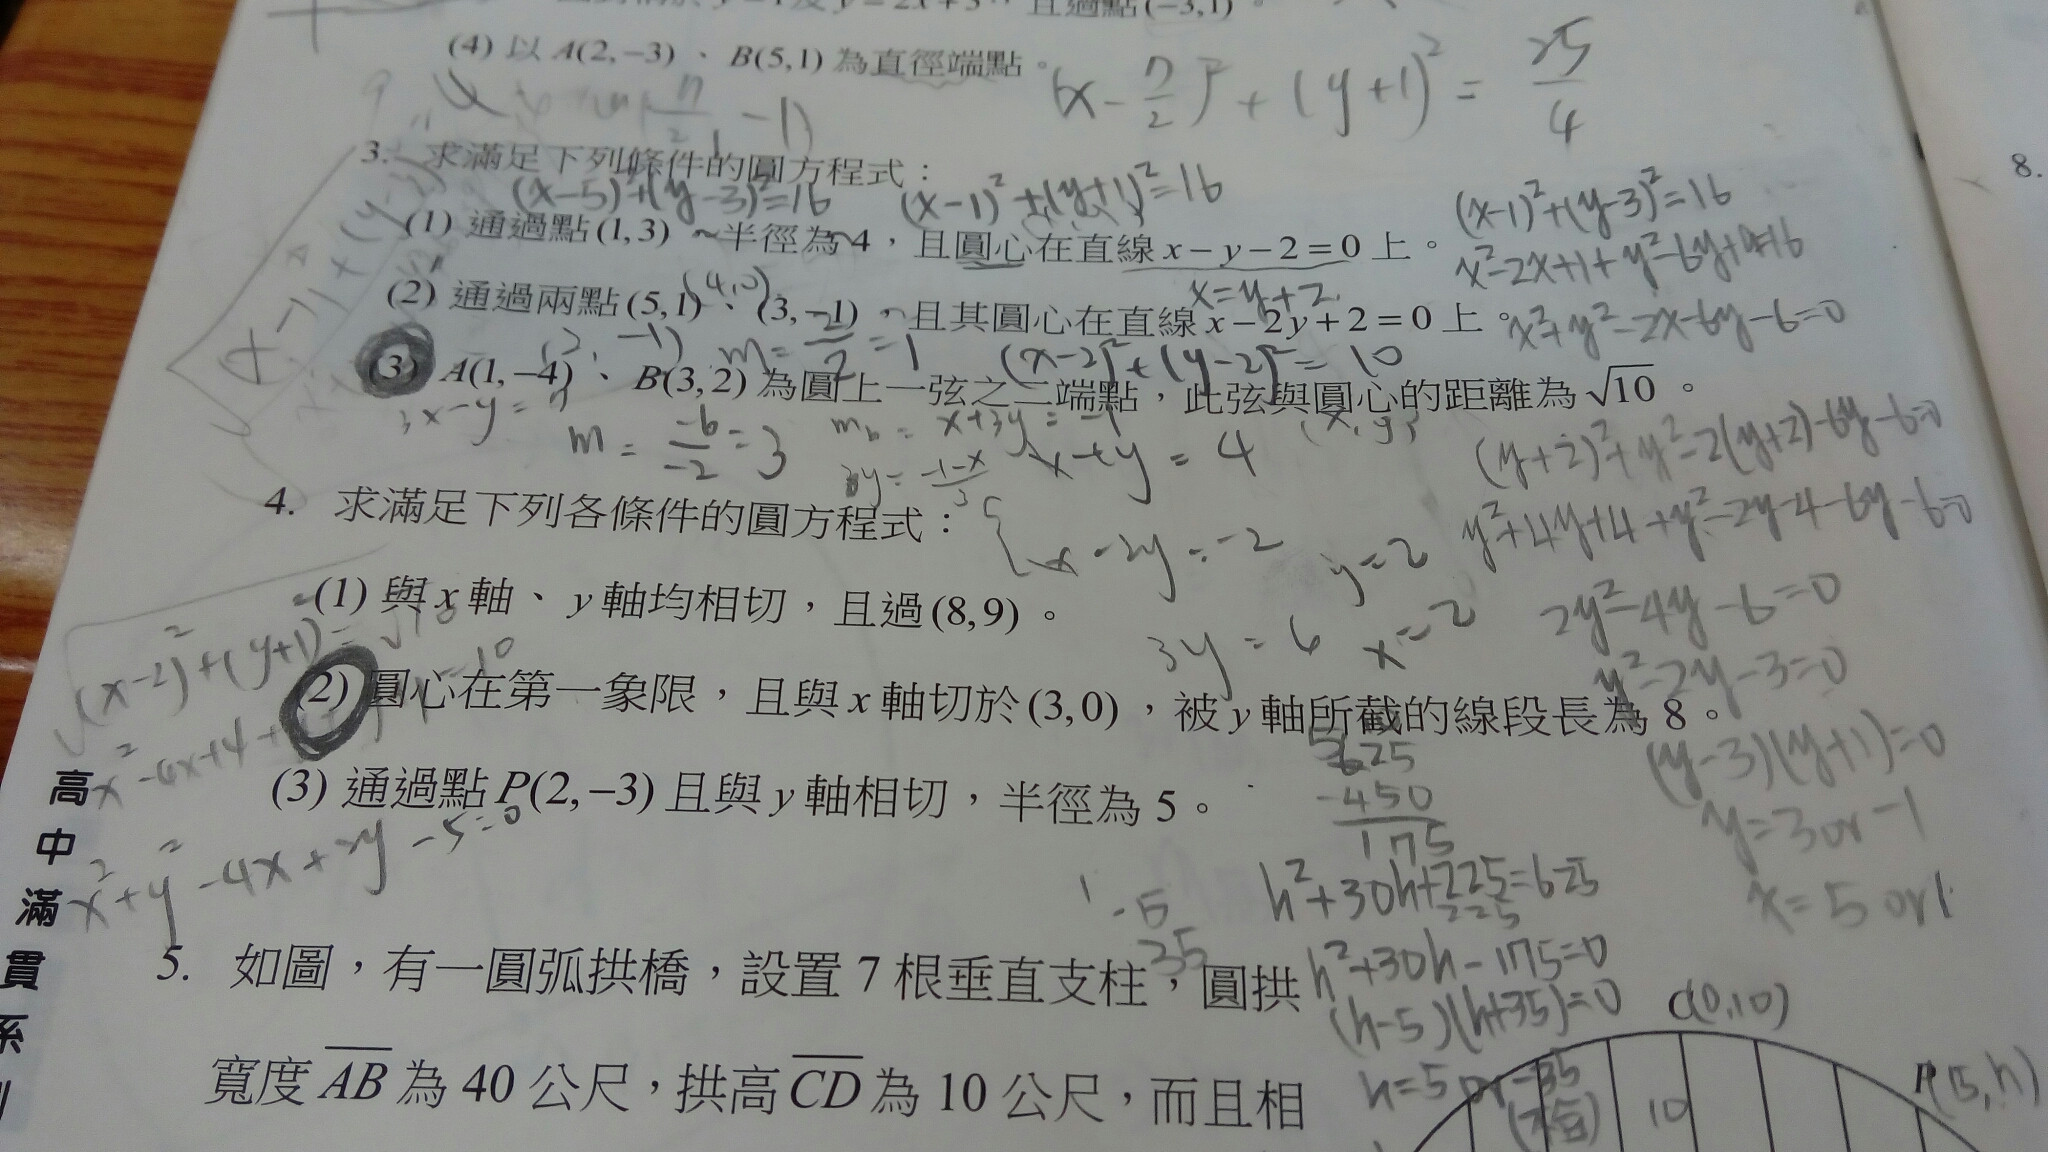 且過點(-3,1)。
(4) 以 A(2,-3)、B(5,1) 為直徑端點。
(x-7/2)²+(y+1)²=25/4
3. 求滿足下列條件的圓方程式：
(x-5)²+(y-3)²=16 (x-1)²+(y+1)²=16
(1) 通過點(1,3)，半徑為4，且圓心在直線 x-y-2=0 上。
x=y+2
(2) 通過兩點(5,1)、(3,-1)，且其圓心在直線 x-2y+2=0 上。
(4,0)
m=-2/-2=1 (x-2)²+(y-2)²=10
(3) A(1,-4)、B(3,2) 為圓上一弦之二端點，此弦與圓心的距離為√10。
3x-y=7
m=-6/-2=3
x+3y=-1
(x,y)
x+y=4
x-2y=-2
3y=6
y=2
x=2
(x-1)²+(y-3)²=16
x²-2x+1+y²-6y+9=16
x²+y²-2x-6y-6=0
(y+2)²+y²-2(y+2)-6y-6=0
y²+4y+4+y²-2y-4-6y-6=0
2y²-4y-6=0
y²-2y-3=0
(y-3)(y+1)=0
y=3 or -1
x=5 or 1
4. 求滿足下列各條件的圓方程式：
(1) 與 x 軸、y 軸均相切，且過(8,9)。
(2) 圓心在第一象限，且與 x 軸切於(3,0)，被 y 軸所截的線段長為 8。
(3) 通過點 P(2,-3) 且與 y 軸相切，半徑為 5。
x²+y²-4x+2y-5=0
625
-450
175
h²+30h+225=625
225
h²+30h-175=0
(h-5)(h+35)=0
h=5 or -35
(不合)
-5
35
5. 如圖，有一圓弧拱橋，設置 7 根垂直支柱，圓拱
寬度 AB 為 40 公尺，拱高 CD 為 10 公尺，而且相
C(0,10)
10
8.
高中滿貫系